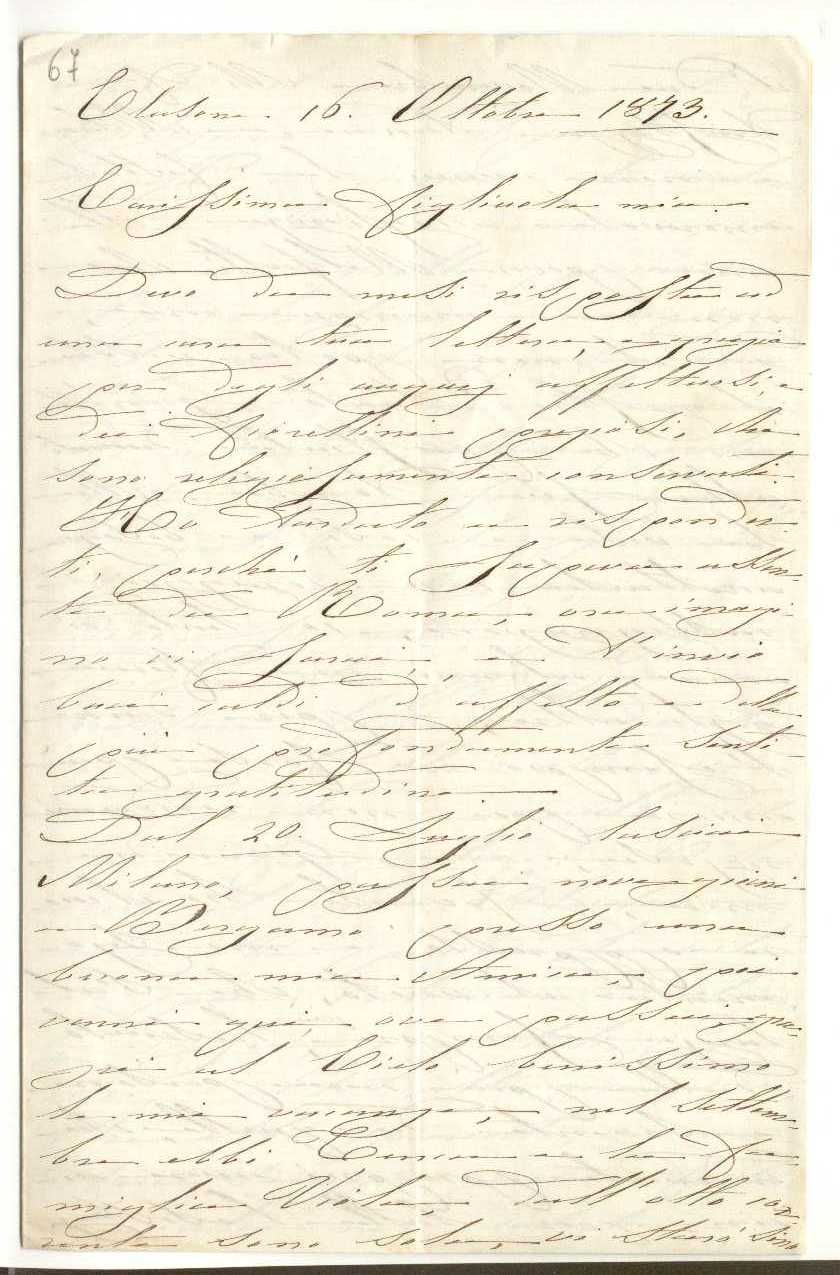 67
Clusone. 16. Ottobre 1873.
Carissima Figliuola mia.
Devo da mesi risposta ad
una cara tua lettera, e grazie
per degli augurj affettuosi, e
dei fiorellini preziosi, che
sono religiosamente conservati.
Ho tardato a risponder-
ti, perchè ti sapeva assen-
te da Roma, ora imagi-
no vi sarai, e t'invio
baci caldi d'affetto e della
più profondamente senti-
ta gratitudine
Dal 20. Luglio lasciai
Milano, passai nove giorni
a Bergamo presso una
buona mia Amica, poi
venni qui, ove passai, gra-
zie al Cielo benissimo
le mie vacanze, nel Settem-
bre ebbi Ernesta e la Fa-
miglia Viola, dall'otto cor-
rente sono sola, vi starò sino